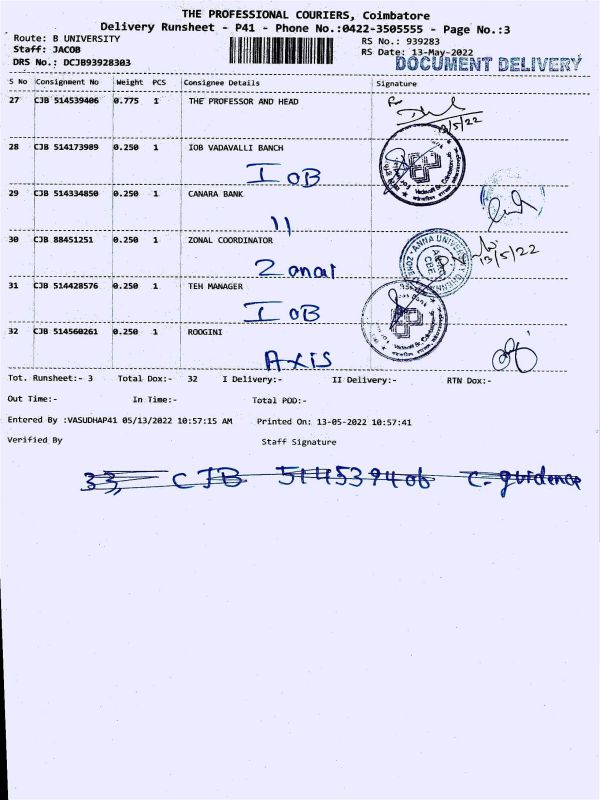 THE PROFESSIONAL COURIERS, Coimbatore
Delivery Runsheet - P41 - Phone No.:0422-3505555 - Page No.:3
Route: B UNIVERSITY RS No.: 939283
Staff: JACOB RS Date: 13-May-2022
DRS No.: DCJB93928303 DOCUMENT DELIVERY
S No Consignment No Weight PCS Consignee Details Signature
27 CJB 514539406 0.775 1 THE PROFESSOR AND HEAD
13/5/22
28 CJB 514173989 0.250 1 IOB VADAVALLI BANCH
IOB
29 CJB 514334850 0.250 1 CANARA BANK
11
30 CJB 88451251 0.250 1 ZONAL COORDINATOR
Zonal 13/5/22
31 CJB 514428576 0.250 1 TEH MANAGER
IOB
32 CJB 514560261 0.250 1 ROOGINI
AXIS
Tot. Runsheet:- 3 Total Dox:- 32 I Delivery:- II Delivery:- RTN Dox:-
Out Time:- In Time:- Total POD:-
Entered By :VASUDHAP41 05/13/2022 10:57:15 AM Printed On: 13-05-2022 10:57:41
Verified By Staff Signature
33, CJB 514539406 C. guidence